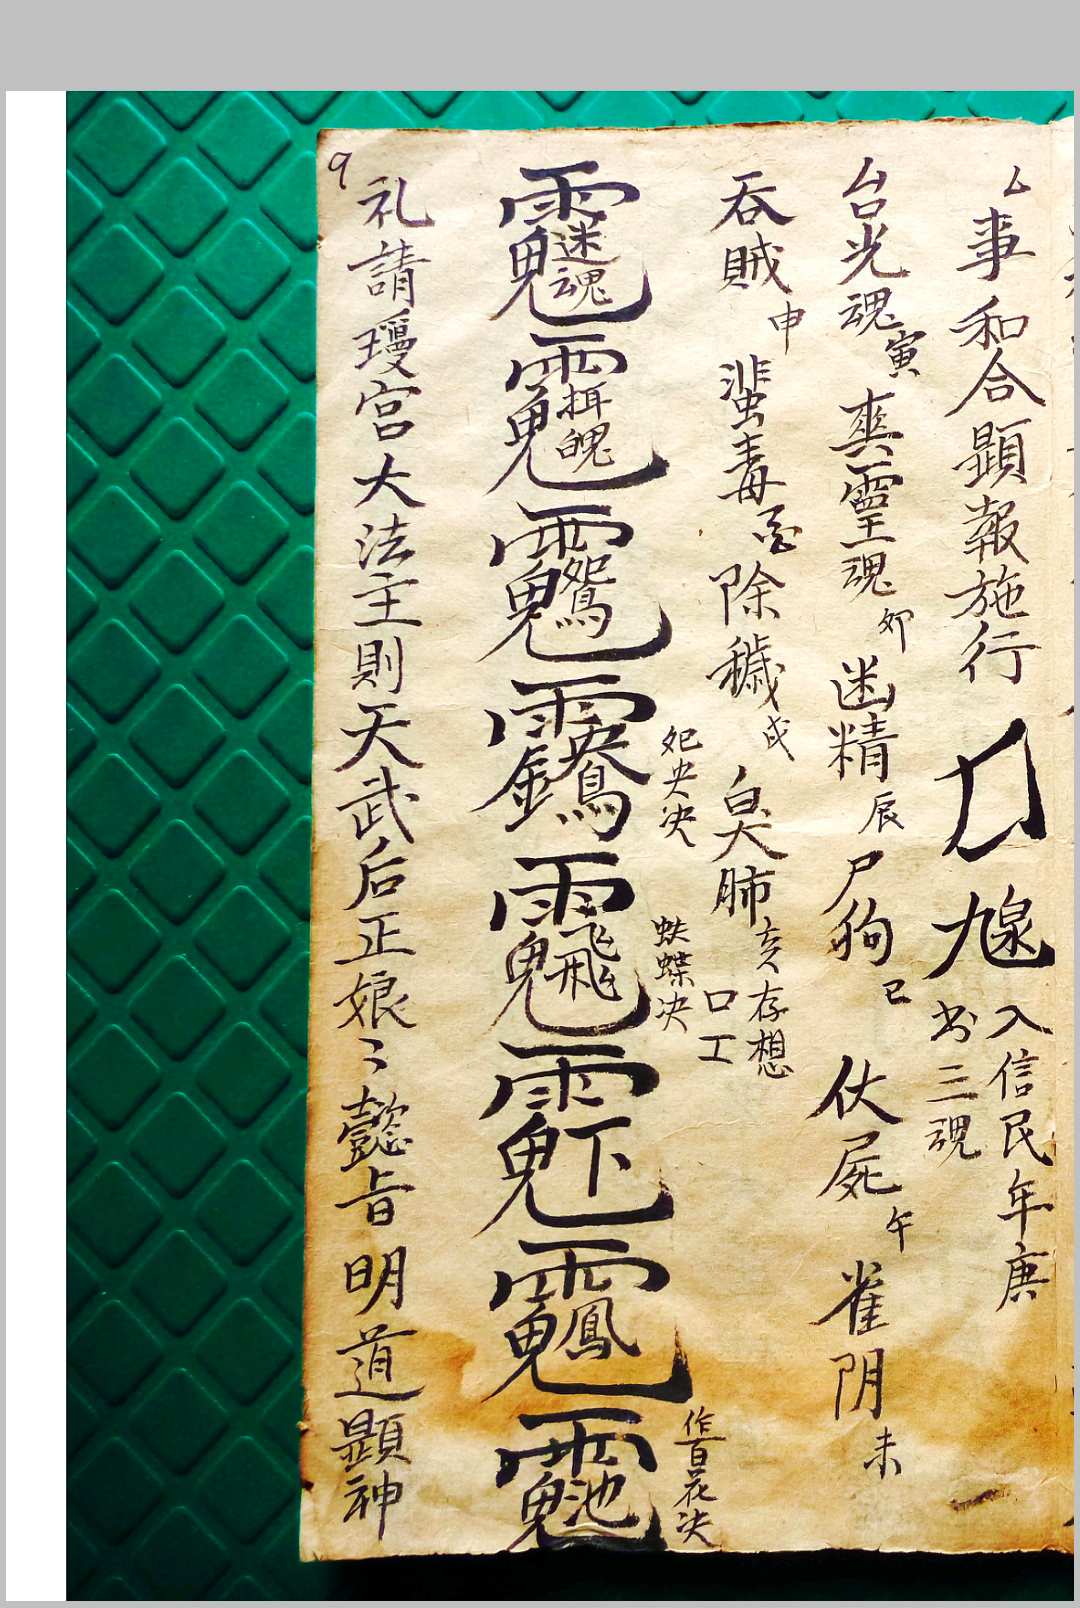 厶事和合顕報施行
入信民年庚
书三魂
台光魂寅 爽靈魂卯 幽精辰 尸狗巳 伏屍午 雀阴未
吞賊申 蜚毒酉 除穢戌 臭肺亥 存想
口工
夗央决
蚨蝶决
作百花决
迷魂
鴛
鴦
飛
下
鳳
池
礼請瓊宫大法主則天武后正娘〻懿旨明道顕神
9